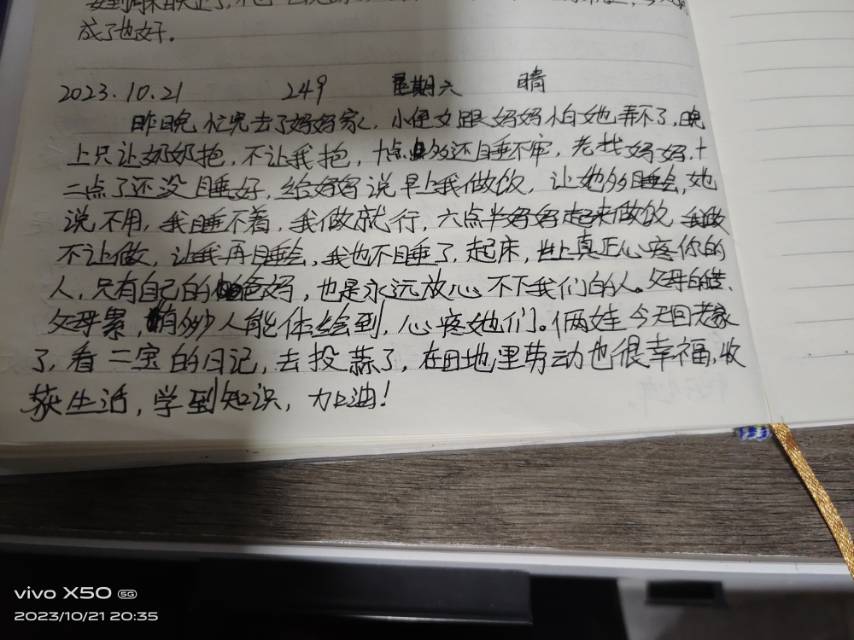 成了也好。
2023.10.21 249 星期六 晴
昨晚忙完去了妈妈家，小侄女跟妈妈怕她弄不了，晚
上只让奶奶抱，不让我抱，十点多还睡不牢，老找妈妈，十
二点了还没睡好，给妈妈说早上我做饭，让她多睡会，她
说不用，我睡不着，我做就行，六点半妈妈起来做饭，我做
不让做，让我再睡会，我也不睡了，起床，世上真正心疼你的
人，只有自己的爸妈，也是永远放心不下我们的人。父母的苦、
父母累，有多少人能体会到，心疼她们。俩娃今天回老家
了，看二宝的日记，去投蒜了，在田地里劳动也很幸福，收
获生活，学到知识，加油！
vivo X50 5G
2023/10/21 20:35